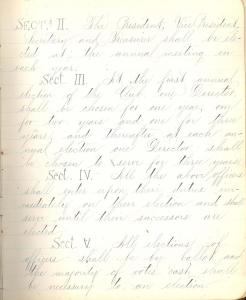 SECT. II. The President, Vice President,
Secretary and Treasurer shall be elec-
ted at the annual meeting in
each year.
Sect. III. At the first annual
election of the Club, one Director
shall be chosen for one year, one
for two years and one for three
years; and thereafter at each an-
nual election one Director shall
be chosen to serve for three years.
Sect. IV. All the above officers
shall enter upon their duties im-
mediately on their election and shall
serve until their successors are
elected.
Sect. V. All elections of
officers shall be by ballot, and
the majority of votes cast shall
be necessary to an election.